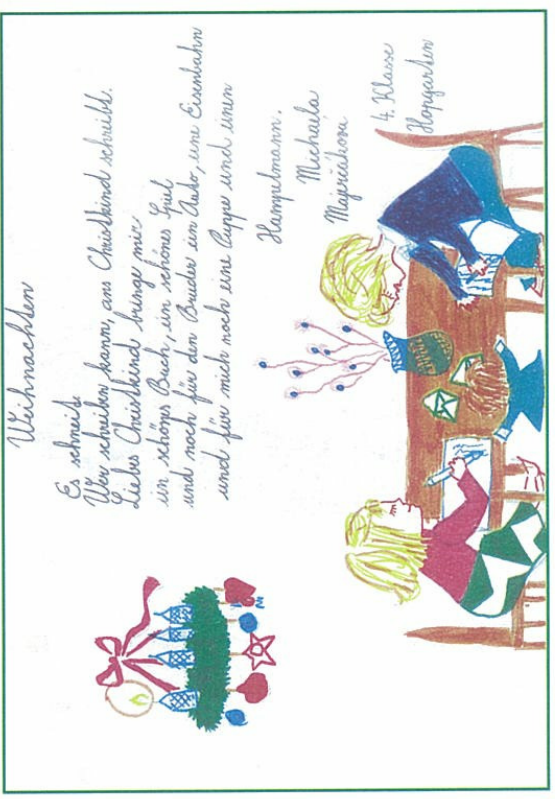 Weihnachten
Es schneit.
Wer schreiben kann, ans Christkind schreibt.
Liebes Christkind bringe mir
ein schönes Buch, ein schönes Spiel
und noch für den Bruder ein Auto, eine Eisenbahn
und für mich noch eine Puppe und einen
Hampelmann.
Michaela
4. Klasse
Hopgarten